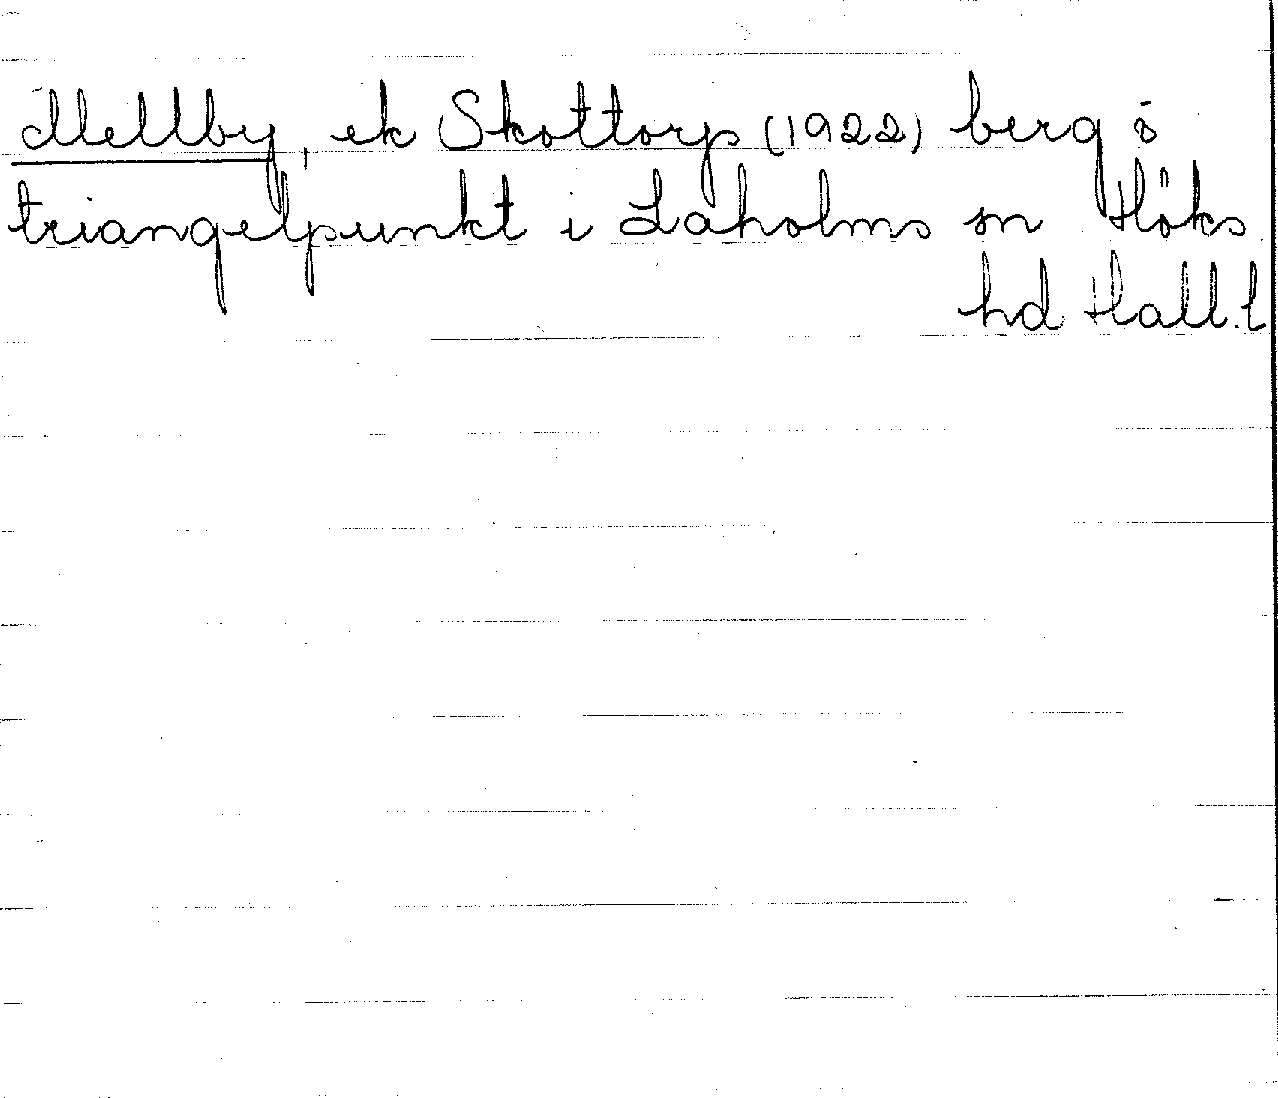 Mellby, ek Skottorp (1922) berg o
triangelpunkt i Laholms sn Höks
hd Hall.l